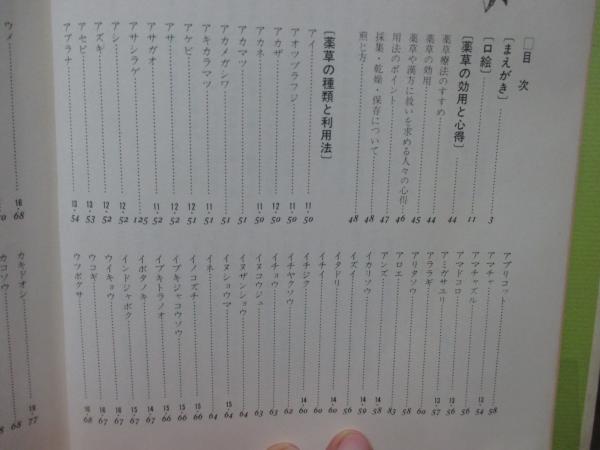 □目次
［まえがき］……3
［口絵］……11
［薬草の効用と心得］……44
薬草療法のすすめ……44
薬草の効用……44
薬草や漢方に救いを求める人々の心得……45
用法のポイント……46
採集・乾燥・保存について……47
煎じ方……48
［薬草の種類と利用法］
アイ……11・50
アオツヅラフジ……50
アカザ……12・50
アカネ……11・50
アカマツ……51
アカメガシワ……51
アキカラマツ……11・51
アケビ……12・51
アサ……12・52
アサガオ……11・52
アサシラゲ……125
アシ……12・52
アズキ……12・52
アセビ……12・53
アブラナ……13・54
アプリコット……58
アマチャ……12・54
アマチャズル……
アマドコロ……13・56
アミガサユリ……13・57
アララギ……60
アリタソウ……58
アロエ……83
アンズ……14・58
イカリソウ……14・59
イズイ……56
イタドリ……14・60
イチイ……60
イチジク……14・60
イチヤクソウ……62
イチョウ……63
イヌコウジュ……63
イヌザンショウ……64
イヌショウマ……15・64
イネ……64
イノコズチ……15・66
イブキジャコウソウ……15・66
イブキトラノオ……15・66
イボタノキ……14・67
インドジャボク……15・67
ウイキョウ……16・67
ウコギ……16・67
ウツボグサ……16・68
ウメ……16・68
カキドオシ……19・77
カコソウ……68